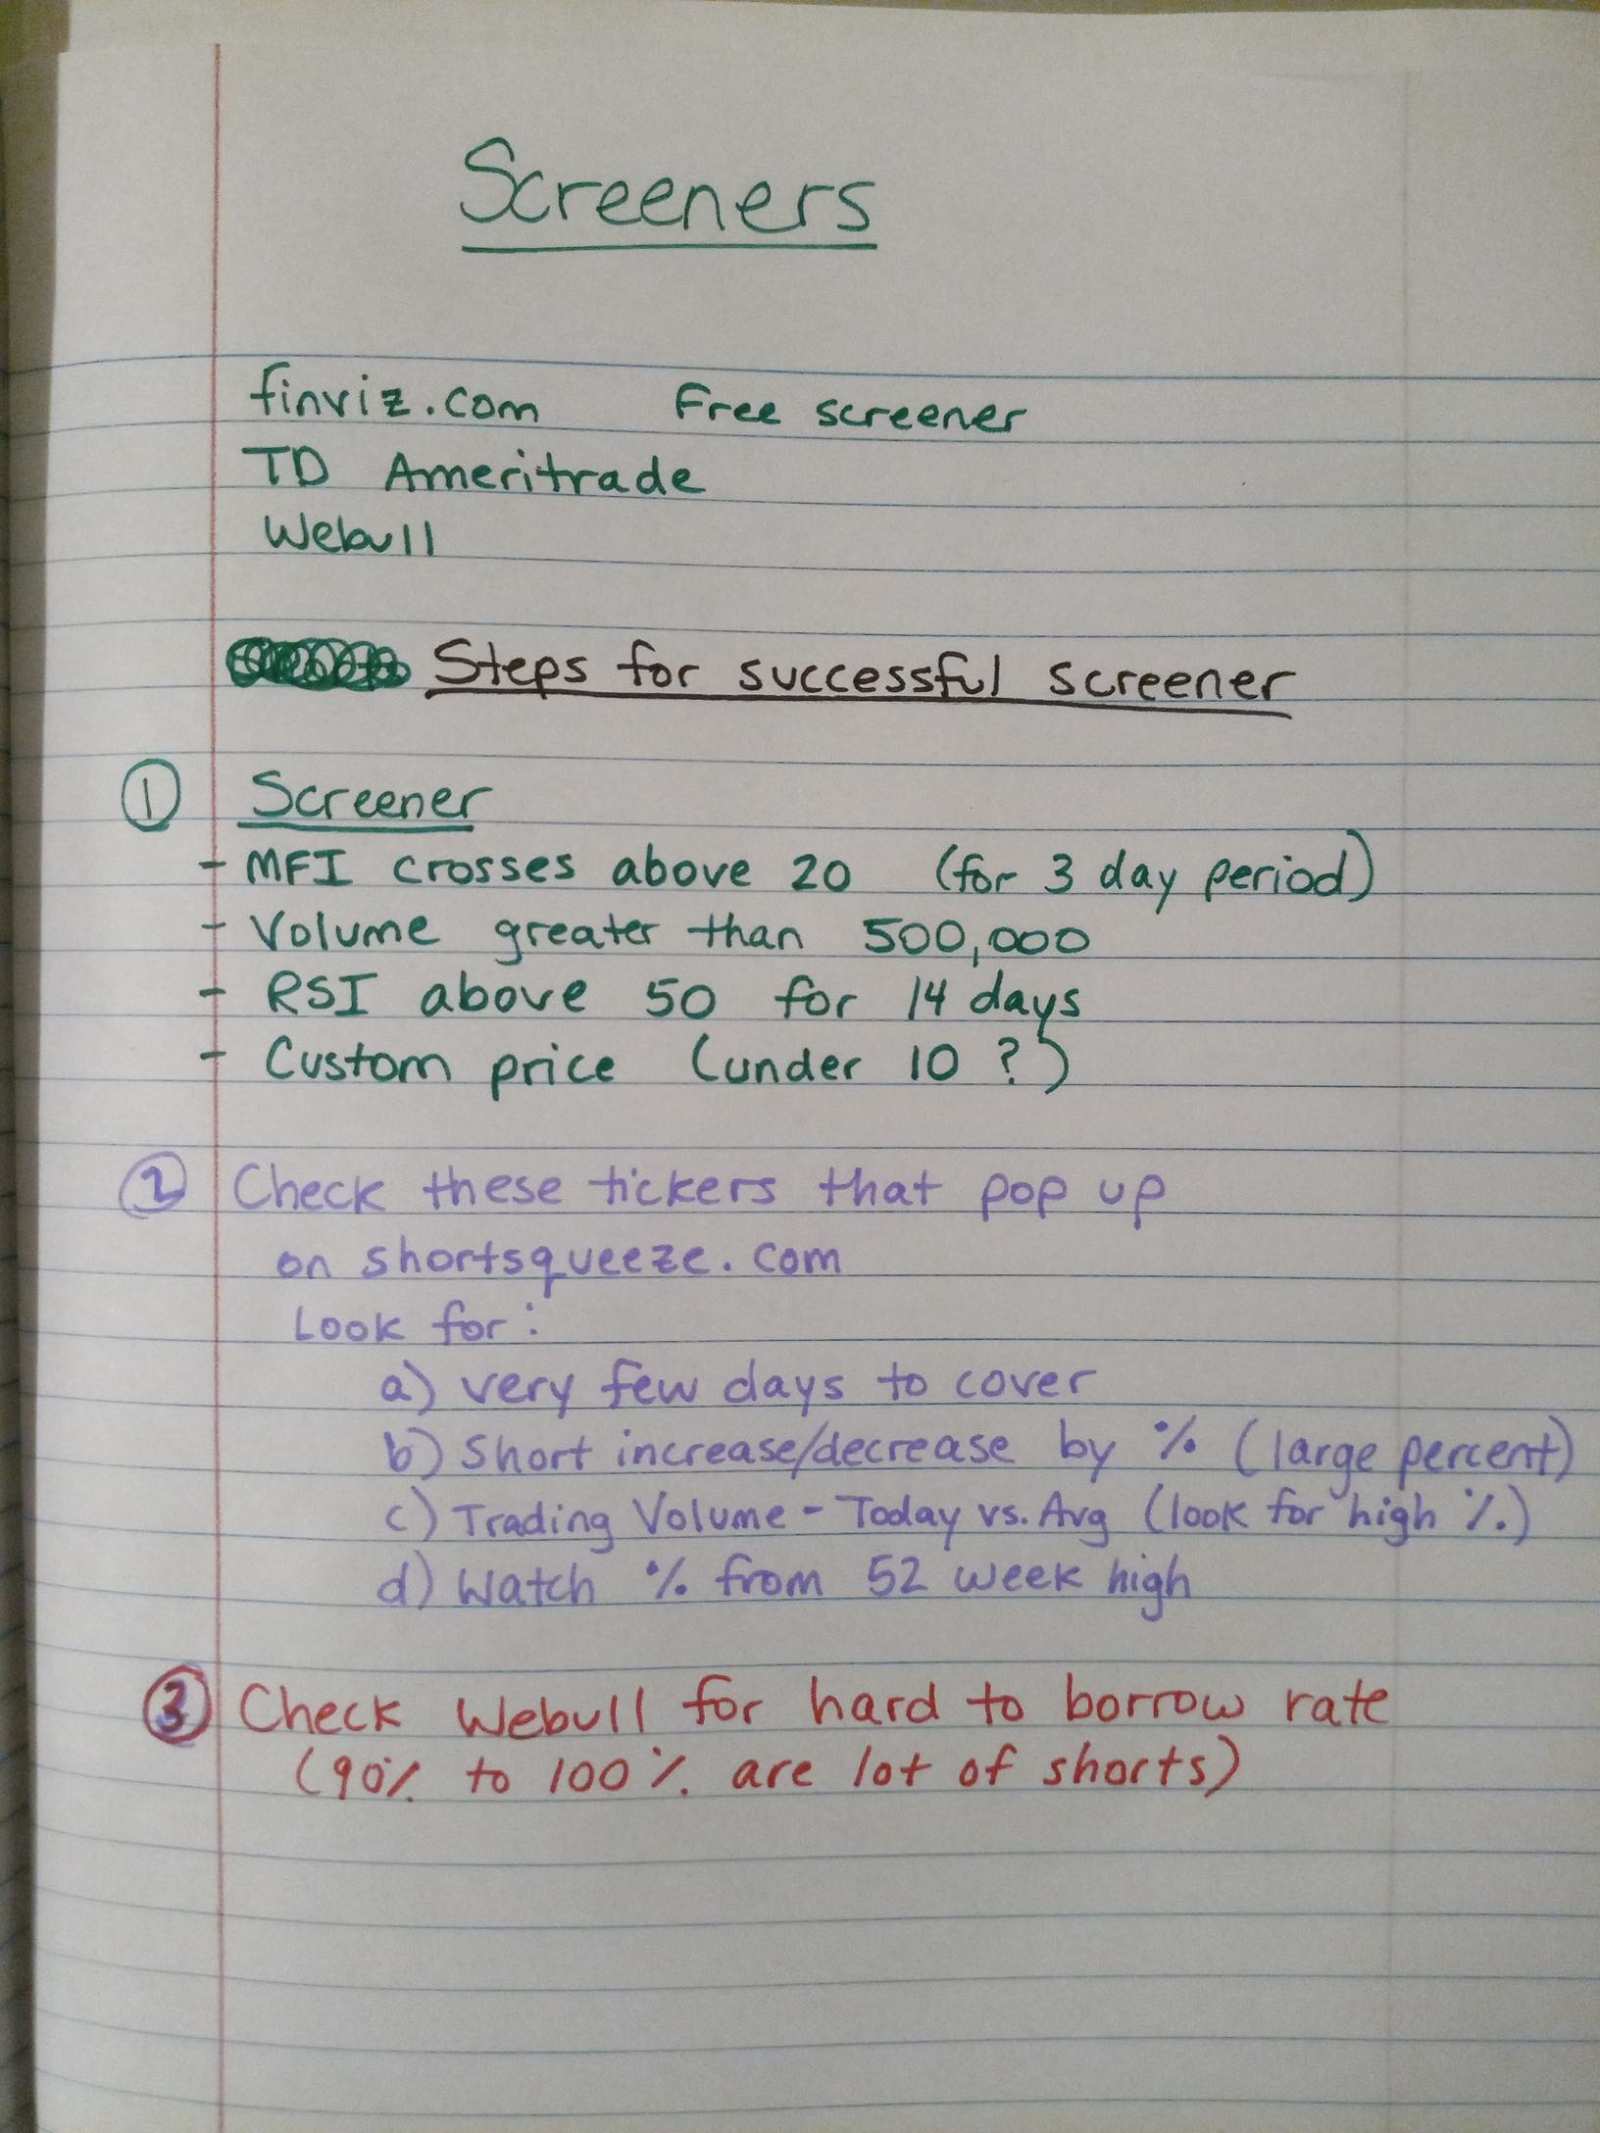 Screeners
finviz.com Free screener
TD Ameritrade
Webull
Steps for successful screener
1 Screener
- MFI crosses above 20 (for 3 day period)
- Volume greater than 500,000
- RSI above 50 for 14 days
- Custom price (under 10 ?)
2 Check these tickers that pop up
on shortsqueeze.com
Look for:
a) very few days to cover
b) Short increase/decrease by % (large percent)
c) Trading Volume - Today vs. Avg (look for high %)
d) Watch % from 52 week high
3 Check Webull for hard to borrow rate
(90% to 100% are lot of shorts)